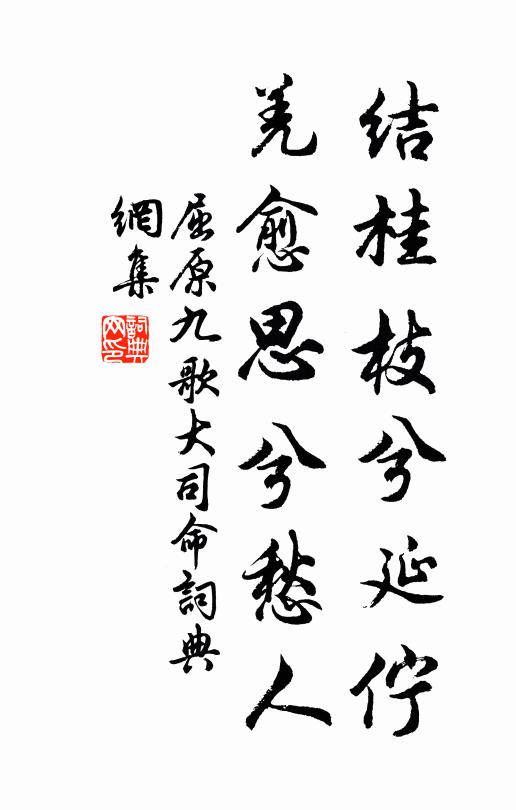 结桂枝兮延伫
羌愈思兮愁人
屈原九歌大司命詞典
網集
詞典
网印